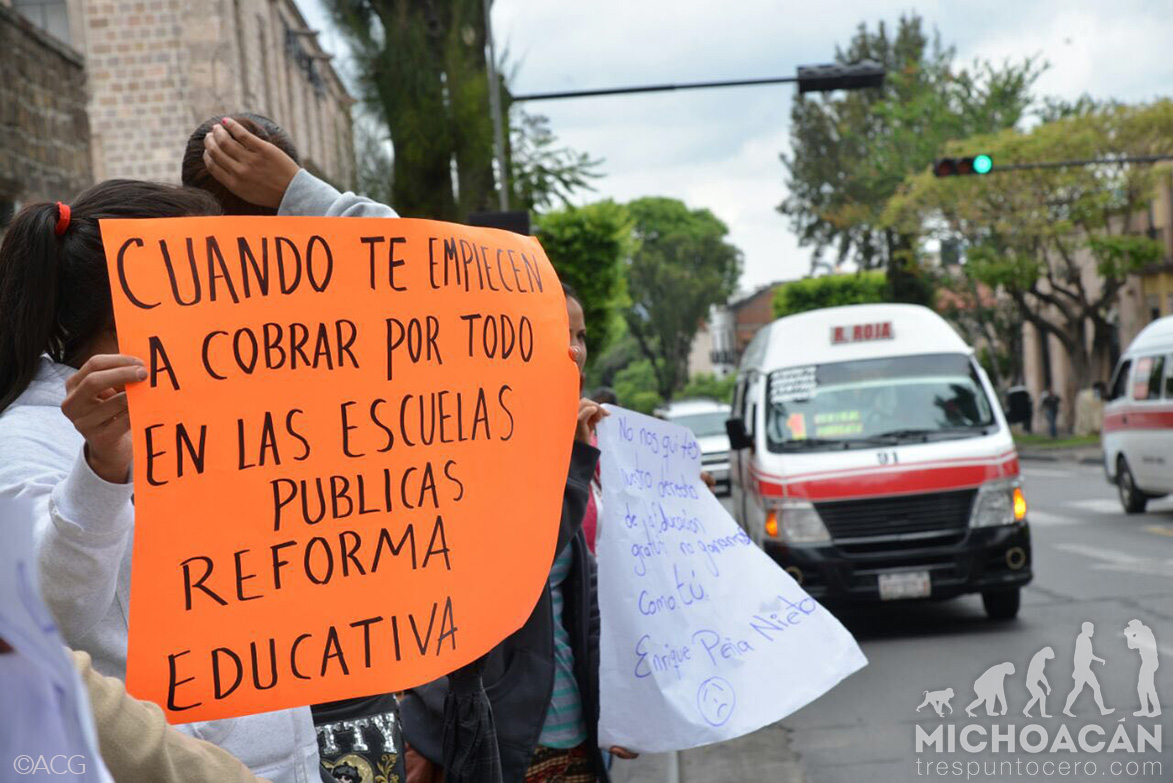 CUANDO TE EMPIECEN
A COBRAR POR TODO
EN LAS ESCUELAS
PUBLICAS
REFORMA
EDUCATIVA
No nos quites
derecho
de la Educación
no ganamos
Como tú.
Enrique Peña Nieto
R. ROJA
1
91
TTY
©ACG
MICHOACÁN
trespuntocero.com